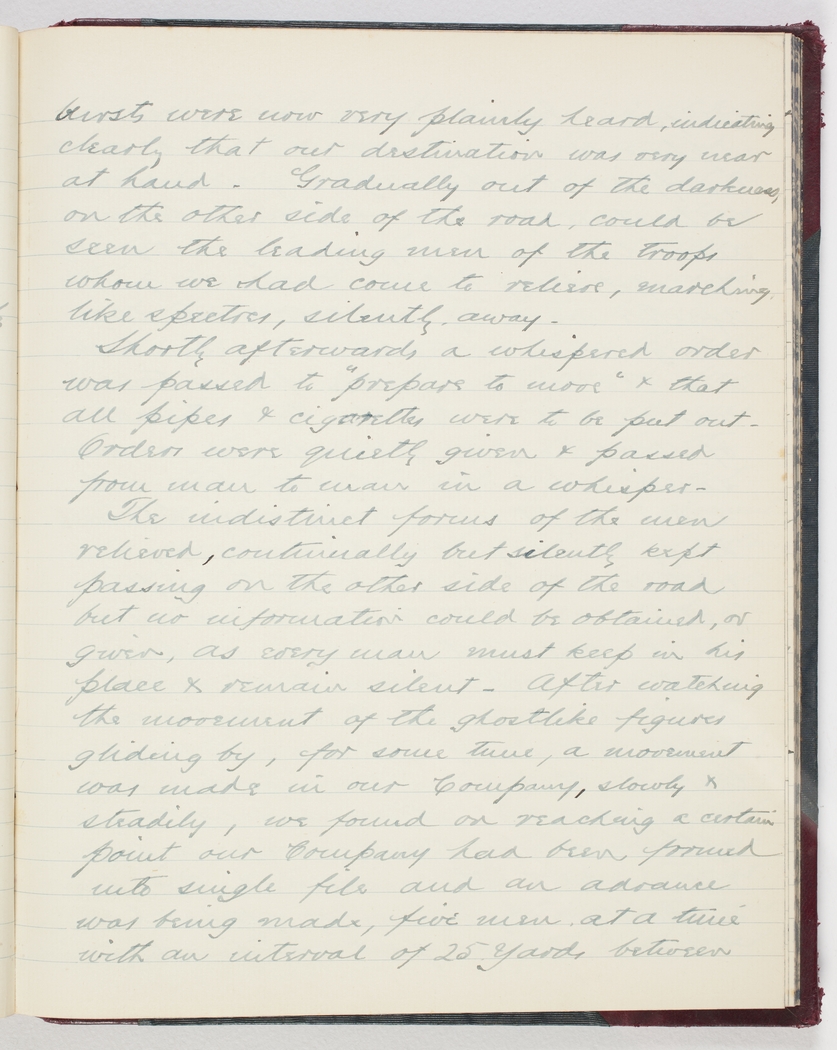 bursts were now very plainly heard, indicating
clearly that our destination was very near
at hand - Gradually out of the darkness,
on the other side of the road, could be
seen the leading men of the troops
whom we had come to relieve, marching,
like spectres, silently, away -
Shortly afterwards a whispered order
was passed to "prepare to move" & that
all pipes & cigarettes were to be put out -
Orders were quietly given & passed
from man to man in a whisper -
The indistinct forms of the men
relieved, continually but silently kept
passing on the other side of the road
but no information could be obtained, or
given, as every man must keep in his
place & remain silent - After watching
the movement of the ghostlike figures
gliding by, for some time, a movement
was made in our Company, slowly &
steadily, we found on reaching a certain
point our Company had been formed
into single file and an advance
was being made, five men at a time
with an interval of 25 yards between